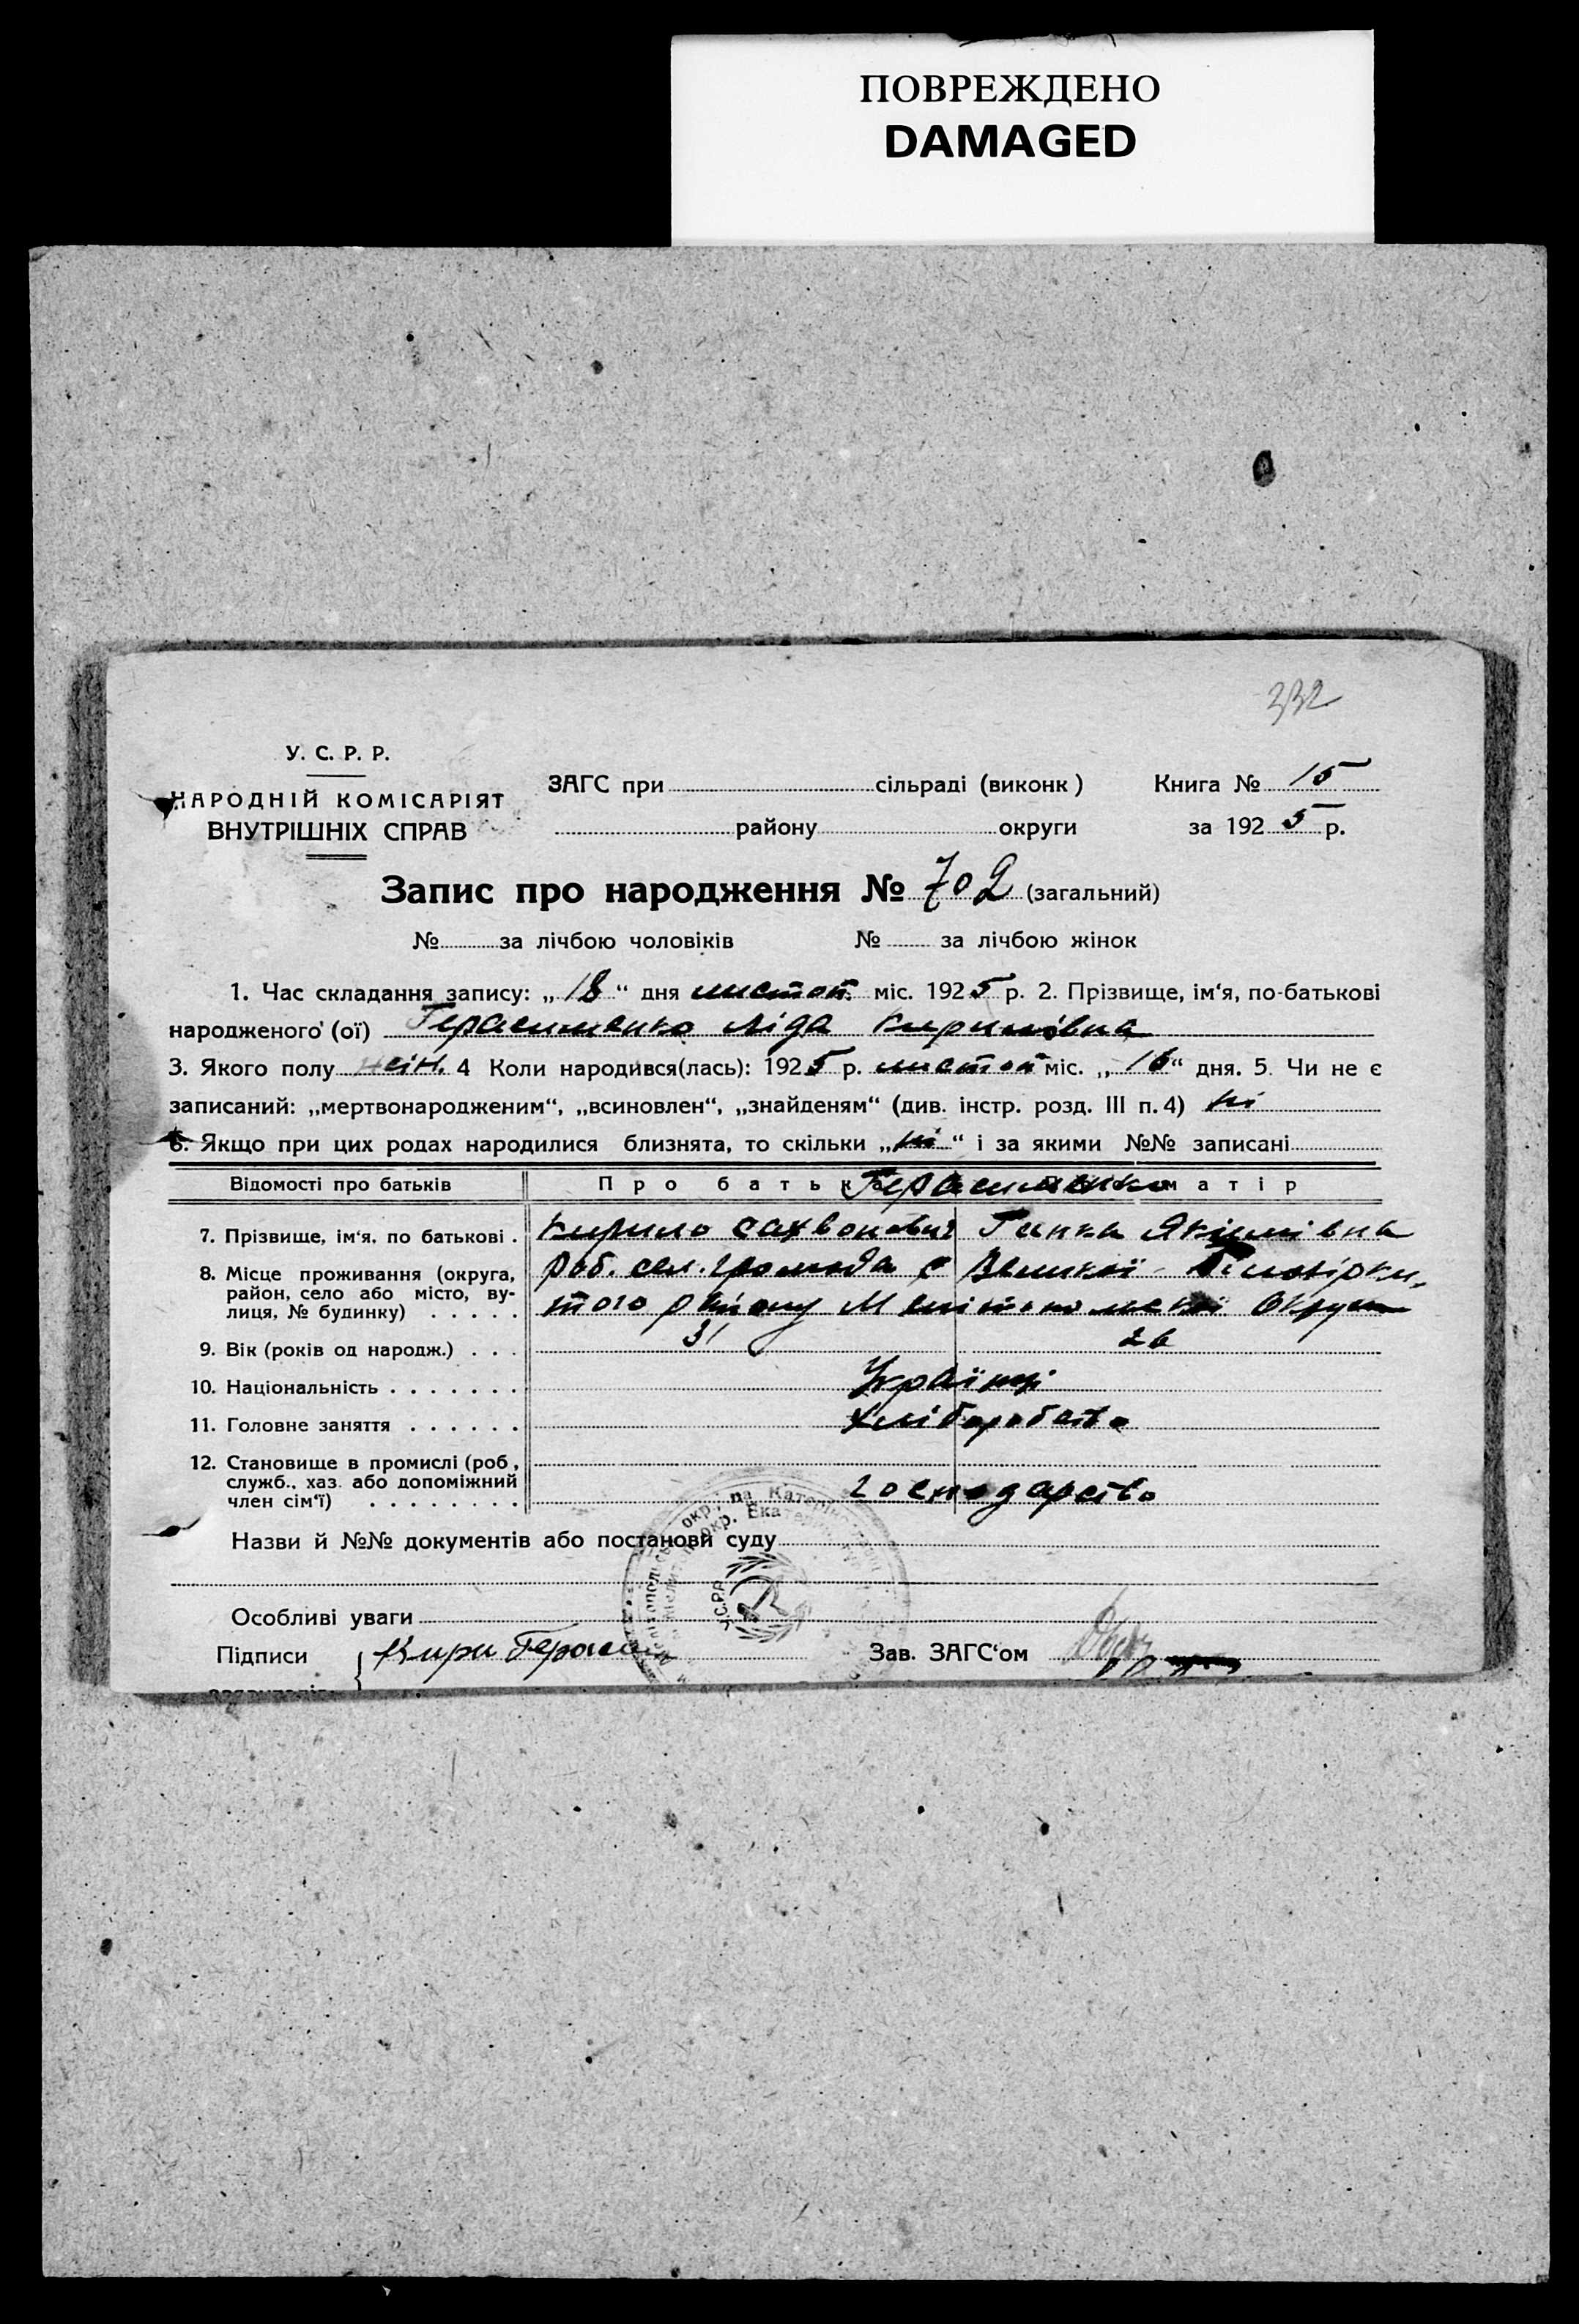 ПОВРЕЖДЕНО
DAMAGED
332
У. С. Р. Р.
НАРОДНІЙ КОМІСАРІЯТ
ВНУТРІШНІХ СПРАВ
ЗАГС при сільраді (виконк)
району округи
Книга № 15
за 1925 р.
Запис про народження № 702 (загальний)
№ за лічбою чоловіків № за лічбою жінок
1. Час складання запису: „18“ дня листоп. міс. 1925 р. 2. Прізвище, ім‘я, по-батькові
народженого (ої) Герасименко Ліда Кирилівна
3. Якого полу жін. 4 Коли народився(лась): 1925 р. листоп міс. „16“ дня. 5. Чи не є
записаний: „мертвонародженим“, „всиновлен“, „знайденям“ (див. інстр. розд. III п. 4) ні
6. Якщо при цих родах народилися близнята, то скільки „ні“ і за якими №№ записані
Відомості про батьків Про батька Герасименко матір
7. Прізвище, ім‘я, по батькові . Кирило Сахвонович Ганка Якимівна
8. Місце проживання (округа, район, село або місто, вулиця, № будинку) . . . . Роб. сел. громада с Великої Білозірки,
того району Мелітопольскої Округи
9. Вік (років од народж.) . . . 31 26
10. Національність . . . . . . . Українці
11. Головне заняття . . . . . . Хліборобство
12. Становище в промислі (роб,
служб., хаз. або допоміжний
член сім‘ї) . . . . . . . . господарство
Назви й №№ документів або постанови суду
Особливі уваги
Підписи Кири Герасим Зав. ЗАГС‘ом